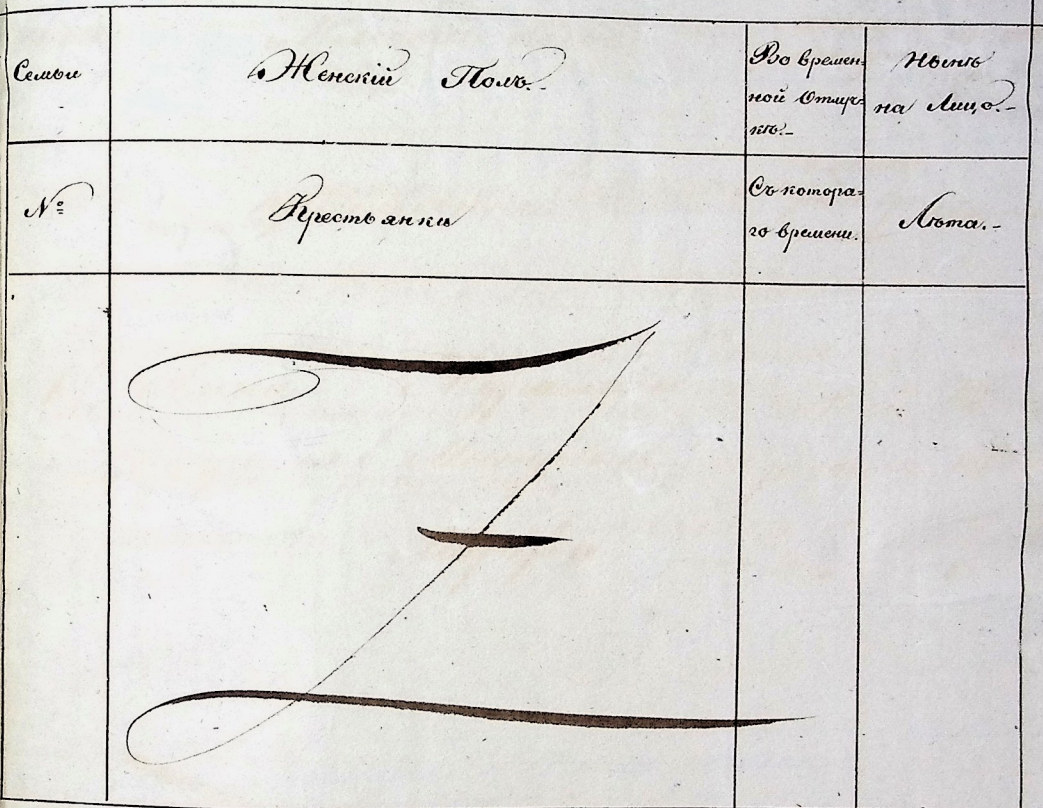 Семьи
Женскій Полъ.
Во времен-
ной Отлуч-
кѣ.
Нынѣ
на Лицо.
№
Крестьянки
Съ котора-
го времени.
Лѣта.